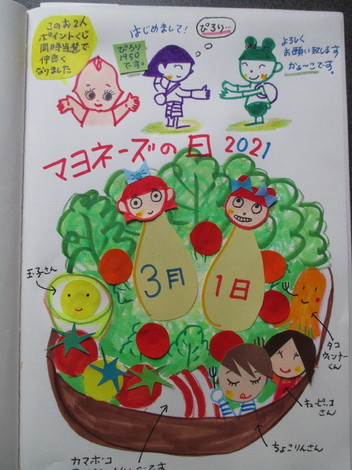 このお2人
ポイントくじ
同時当選で
仲良く
なりました
はじめまして!
ぴろり
1950
です。
ぴろり…
よろしく
お願い致します
かよ〜こです。
マヨネーズの日 2021
3月
1日
玉子さん
タコ
ウィンナー
くん
キューピッコ
さん
ちょこりんさん
カマボコ